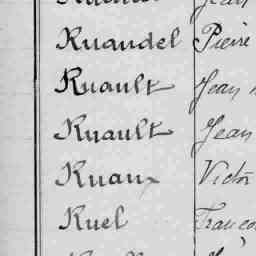 Ruaudel Pierre
Ruault Jean
Ruault Jean
Ruaux Victor
Ruel